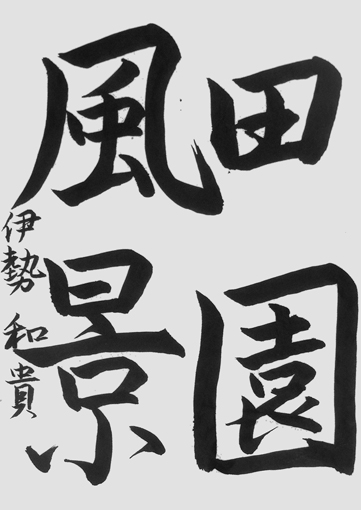 田園
風景
伊勢 和貴